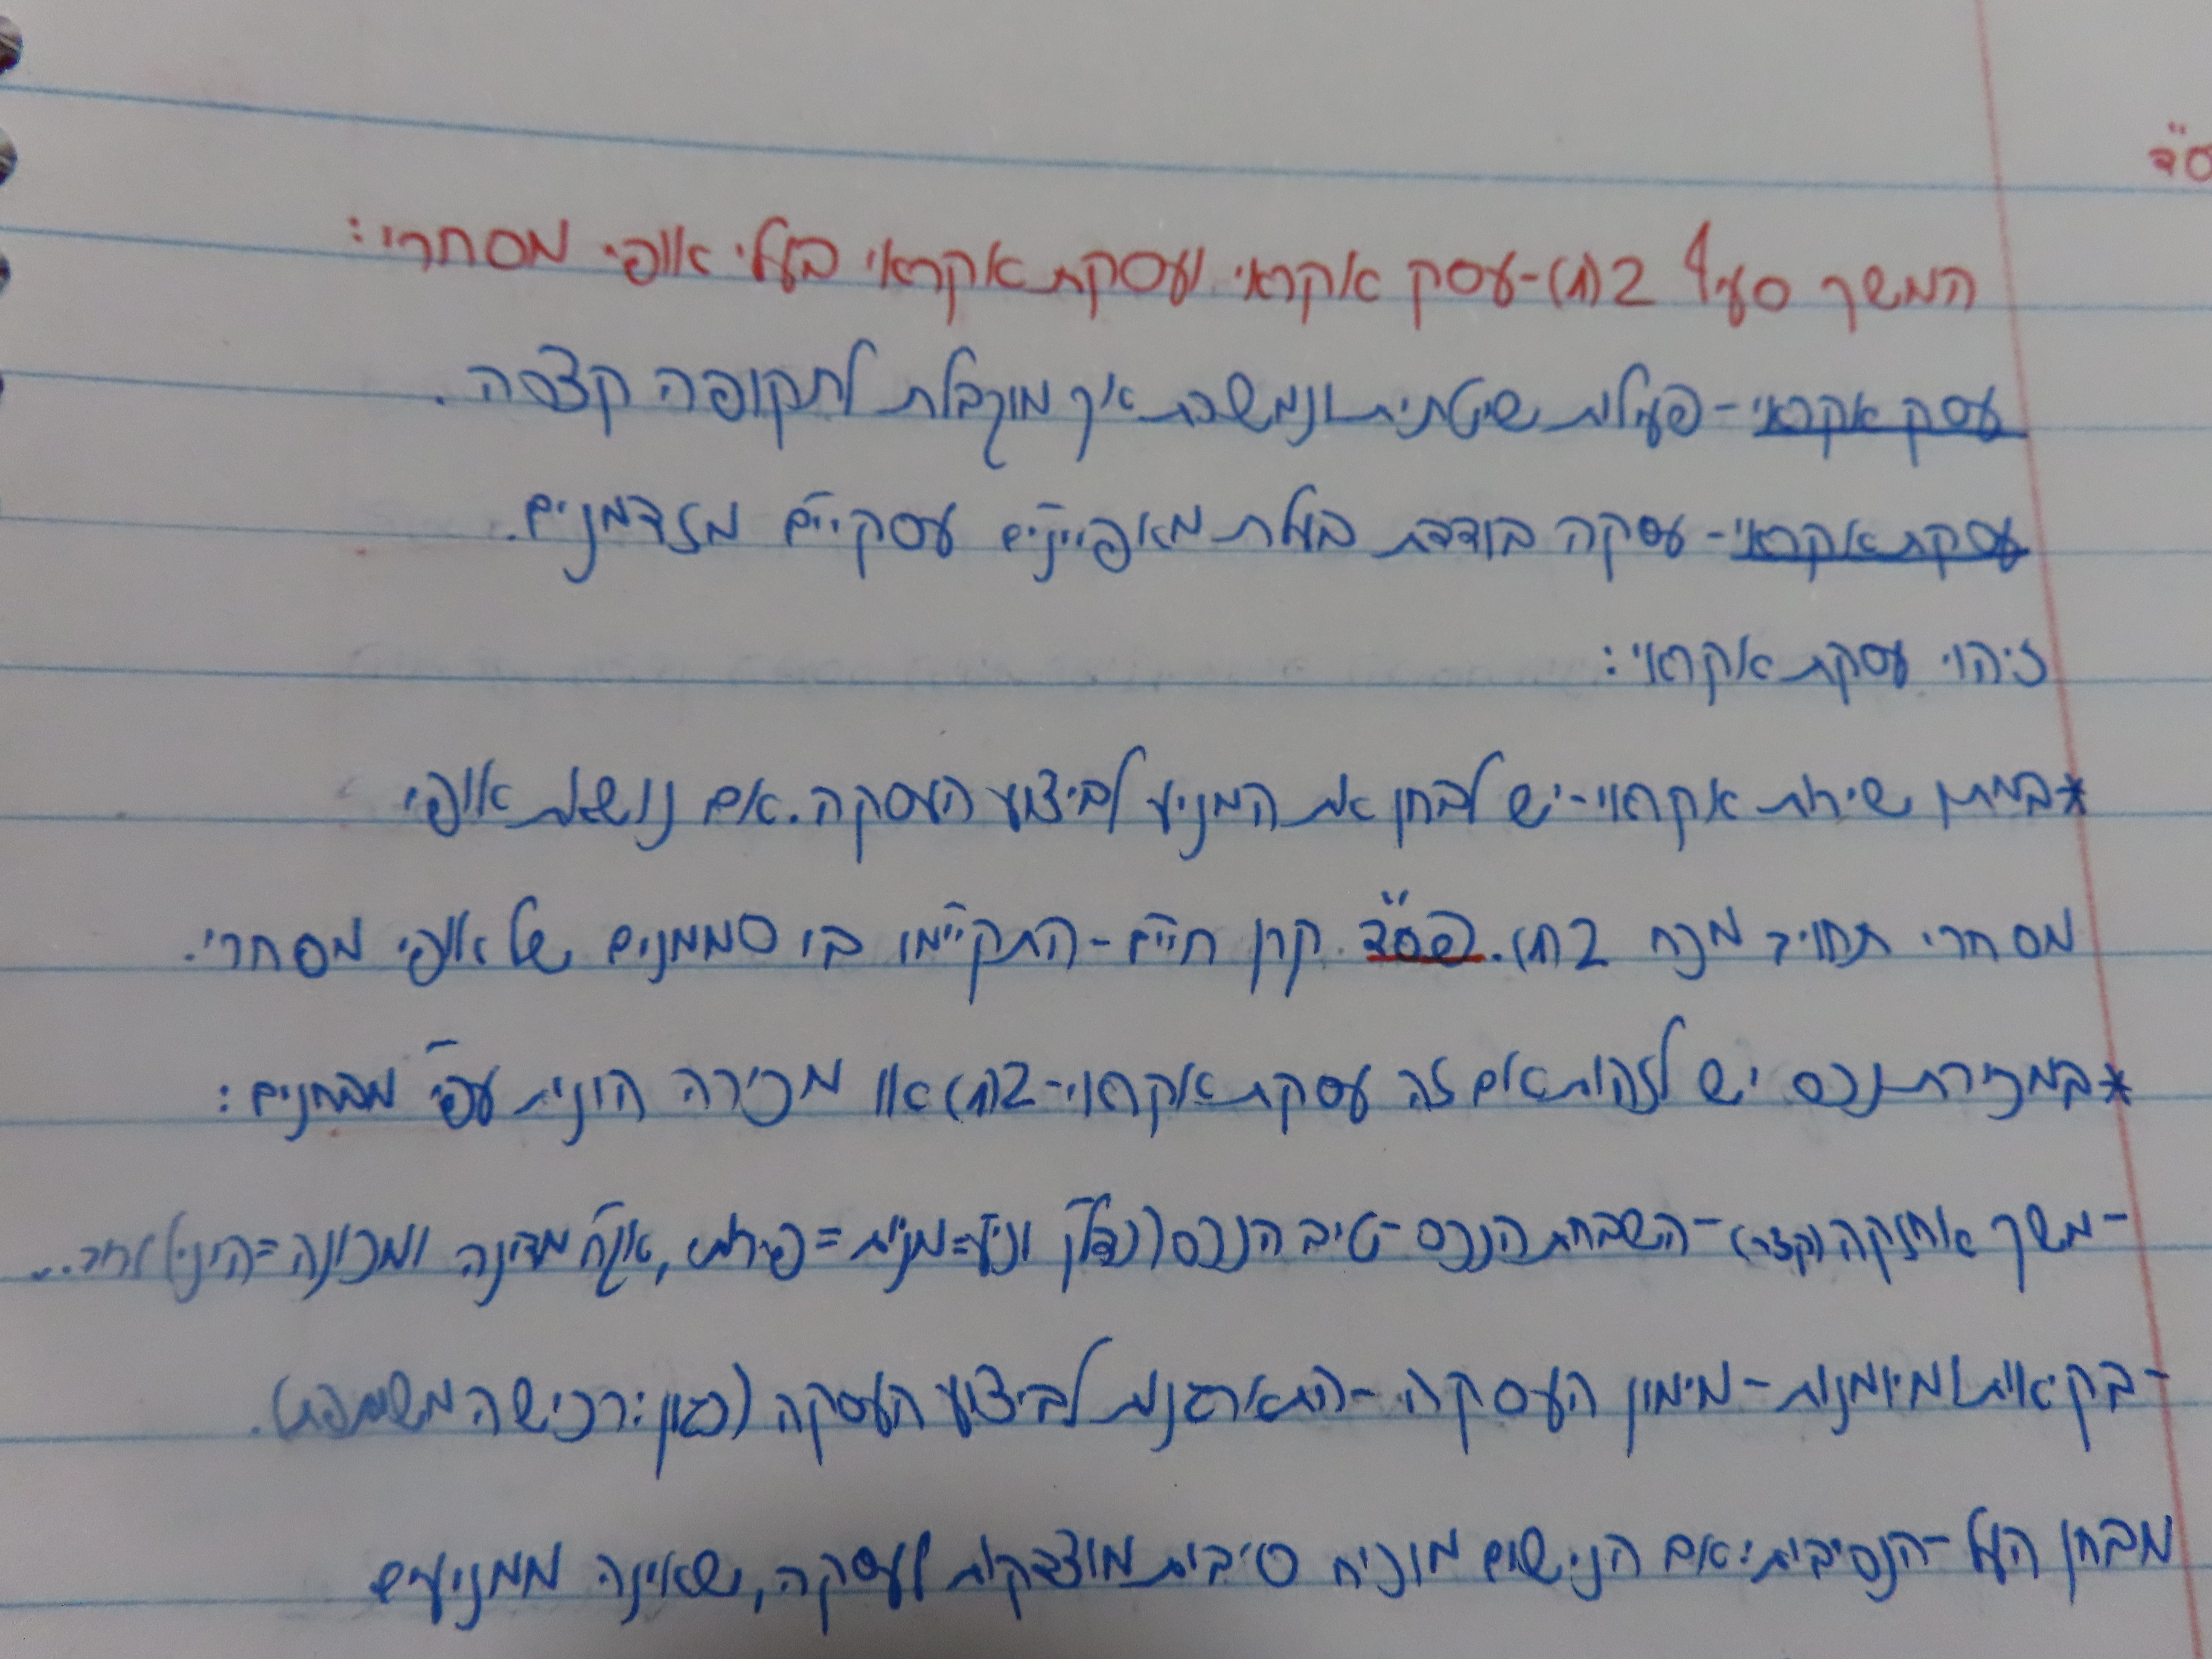 ס"ד
המשך סעיף 2(1)-עסק אקראי ועסקת אקראי בעלי אופי מסחרי:
עסק אקראי-פעילות שיטתית ונמשכת אך מוגבלת לתקופה קצרה.
עסקת אקראי-עסקה בודדת בעלת מאפיינים עסקיים מזדמנים.
זיהוי עסקת אקראי:
*במתן שירות אקראי-יש לבחון את המניע לביצוע העסקה. אם נושאת אופי
מסחרי תחויב מכח 2(1). פס"ד קרן חיים-התקיימו בו סממנים של אופי מסחרי.
*במכירת נכס יש לזהות אם זה עסקת אקראי-2(1) או מכירה הונית עפ"י מבחנים:
-משך אחזקה (קצר)-השבחת הנכס-טיב הנכס (נדל"ן וני"ע=מניות=פירותי, אג"ח מדינה ומכונה=הוני)
-בקיאות ומיומנות-מימון העסקה-התארגנות לביצוע העסקה (כגון: רכישה משותפת).
מבחן העל-הנסיבות: אם הנישום מוכיח סיבות מוצדקות לעסקה, שאינה ממניעים